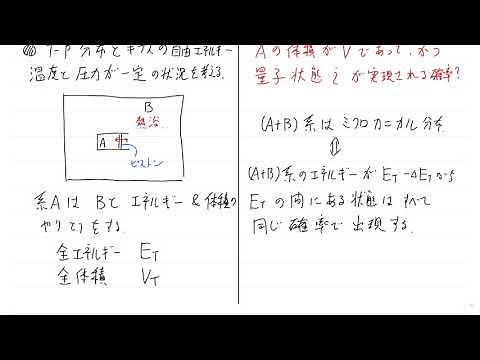 T-P 分布とギブスの自由エネルギー
温度と圧力が一定の状況を考える.
B
熱浴
A
ピストン
系AはBとエネルギー&体積の
やりとりをする
全エネルギー E_T
全体積 V_T
Aの体積がVであって、かつ
量子状態 i が実現される確率?
(A+B)系はミクロカニカル分布
⇕
(A+B)系のエネルギーがE_T-ΔE_Tから
E_Tの間にある状態はすべて
同じ確率で出現する.